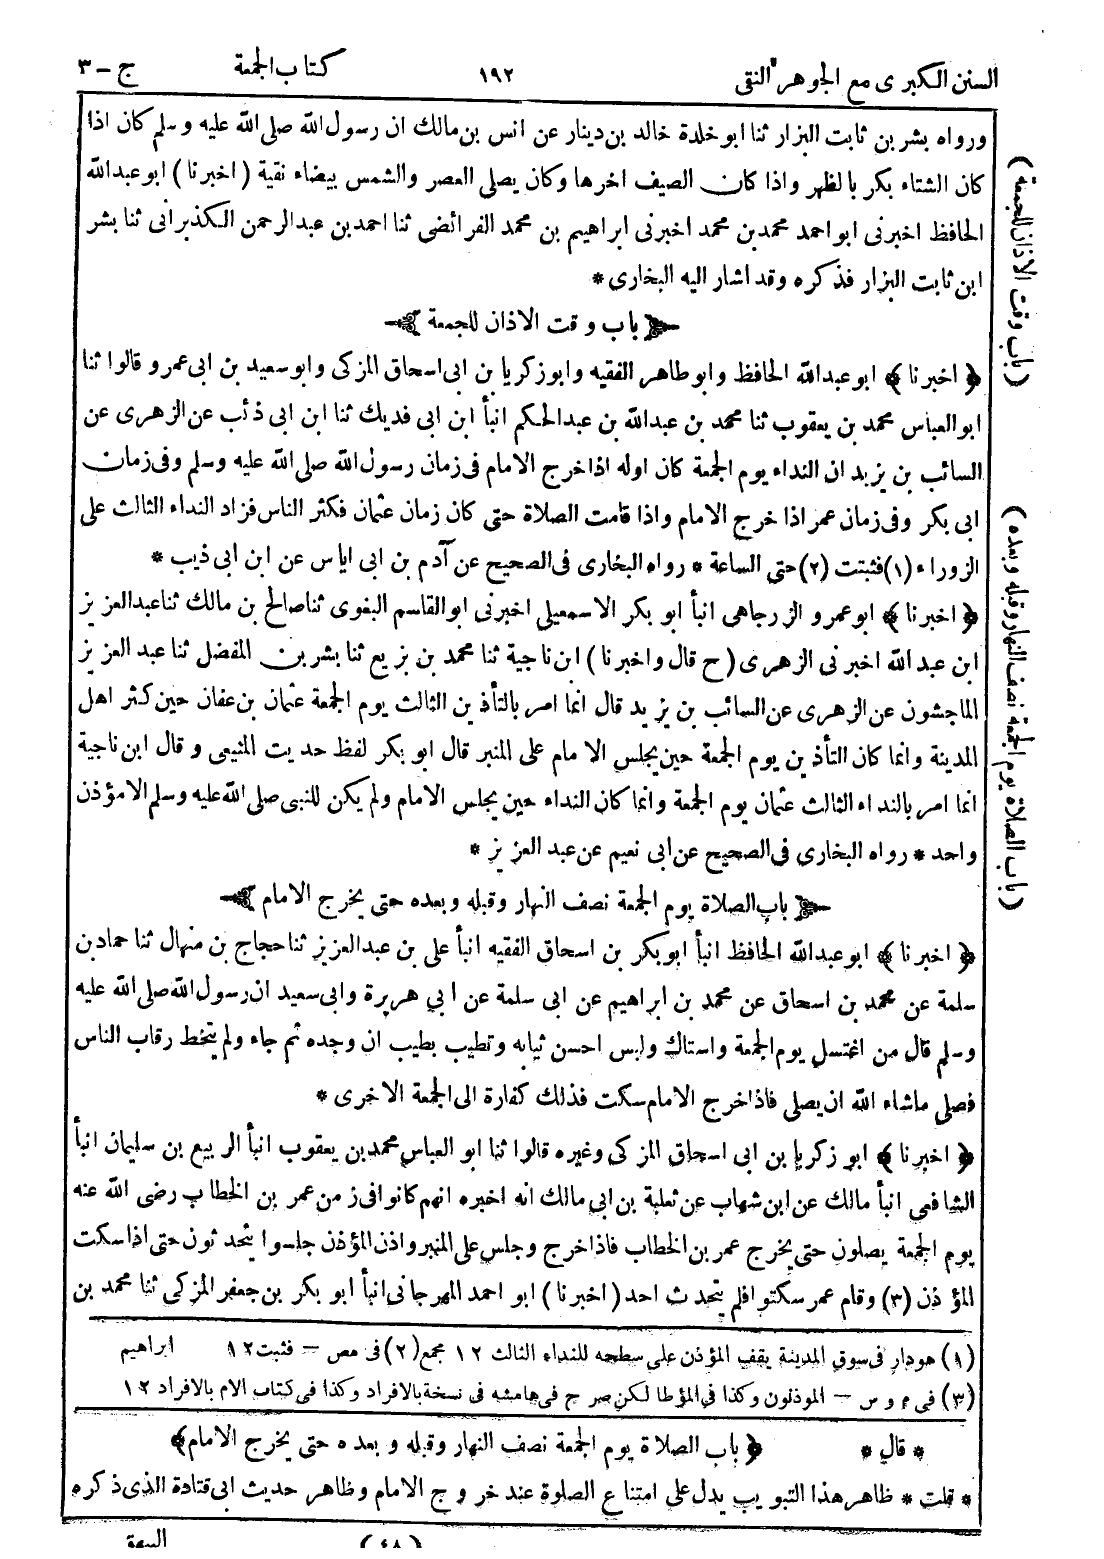 السنن الكبرى مع الجوهر النقى ١٩٢ كتاب الجمعة ج - ٣
ورواه بشر بن ثابت البزار ثنا ابو خلدة خالد بن دينار عن انس بن مالك ان رسول الله صلى الله عليه وسلم كان اذا
كان الشتاء بكر بالظهر واذا كان الصيف اخرها وكان يصلى العصر والشمس بيضاء نقية ( اخبرنا ) ابو عبدالله
الحافظ اخبرنى ابو احمد محمد بن محمد اخبرنى ابراهيم بن محمد الفرائضى ثنا احمد بن عبدالرحمن الكذبرانى ثنا بشر
ابن ثابت البزار فذكره وقد اشار اليه البخارى *
باب وقت الاذان للجمعة
﴿ اخبرنا ﴾ ابو عبدالله الحافظ وابو طاهر الفقيه وابو زكريا بن ابى اسحاق المزكى وابو سعيد بن ابى عمرو قالوا ثنا
ابو العباس محمد بن يعقوب ثنا محمد بن عبدالله بن عبدالحكم انبأ ابن ابى فديك ثنا ابن ابى ذئب عن الزهرى عن
السائب بن يزيد ان النداء يوم الجمعة كان اوله اذا خرج الامام فى زمان رسول الله صلى الله عليه وسلم وفى زمان
ابى بكر وفى زمان عمر اذا خرج الامام واذا قامت الصلاة حتى كان زمان عثمان فكثر الناس فزاد النداء الثالث على
الزوراء (١) فثبتت (٢) حتى الساعة * رواه البخارى فى الصحيح عن آدم بن ابى اياس عن ابن ابى ذيب *
﴿ اخبرنا ﴾ ابو عمرو الرزجاهى انبأ ابو بكر الاسمعيلى اخبرنى ابو القاسم البغوى ثنا صالح بن مالك ثنا عبدالعزيز
ابن عبد الله اخبرنى الزهرى ( ح قال واخبرنا ) ابن ناجية ثنا محمد بن بزيع ثنا بشر بن المفضل ثنا عبد العزيز
الماجشون عن الزهرى عن السائب بن يزيد قال انما امر بالتأذين الثالث يوم الجمعة عثمان بن عفان حين كثر اهل
المدينة وانما كان التأذين يوم الجمعة حين يجلس الامام على المنبر قال ابو بكر لفظ حديث المنيعى وقال ابن ناجية
انما امر بالنداء الثالث عثمان يوم الجمعة وانما كان النداء حين يجلس الامام ولم يكن للنبى صلى الله عليه وسلم الا مؤذن
واحد * رواه البخارى فى الصحيح عن ابى نعيم عن عبد العزيز *
باب الصلاة يوم الجمعة نصف النهار وقبله وبعده حتى يخرج الامام
﴿ اخبرنا ﴾ ابو عبدالله الحافظ انبأ ابو بكر بن اسحاق الفقيه انبأ على بن عبدالعزيز ثنا حجاج بن منهال ثنا حماد بن
سلمة عن محمد بن اسحاق عن محمد بن ابراهيم عن ابى سلمة عن ابي هريرة وابى سعيد ان رسول الله صلى الله عليه
وسلم قال من اغتسل يوم الجمعة واستاك ولبس احسن ثيابه وتطيب بطيب ان وجده ثم جاء ولم يتخط رقاب الناس
فصلى ماشاء الله ان يصلى فاذا خرج الامام سكت فذلك كفارة الى الجمعة الاخرى *
﴿ اخبرنا ﴾ ابو زكريا بن ابى اسحاق المزكى وغيره قالوا ثنا ابو العباس محمد بن يعقوب انبأ الربيع بن سليمان انبأ
الشافعى انبأ مالك عن ابن شهاب عن ثعلبة بن ابي مالك انه اخبره انهم كانوا فى زمن عمر بن الخطاب رضى الله عنه
يوم الجمعة يصلون حتى يخرج عمر بن الخطاب فاذا خرج وجلس على المنبر واذن المؤذن جلسوا يتحدثون حتى اذا سكت
المؤذن (٣) وقام عمر سكتوا فلم يتحدث احد ( اخبرنا ) ابو احمد المهرجانى انبأ ابو بكر بن جعفر المزكى ثنا محمد بن
(١) هو دار فى سوق المدينة يقف المؤذن على سطحه للنداء الثالث ١٢ مجمع (٢) فى مص - فثبت ١٢ ابراهيم
(٣) فى م و س - الموذنون وكذا فى المؤطا لكن صرح فى هامشه فى نسخة بالافراد وكذا فى كتاب الام بالافراد ١٢
* قال * ﴿ باب الصلاة يوم الجمعة نصف النهار وقبله وبعده حتى يخرج الامام ﴾
* قلت * ظاهر هذا التبويب يدل على امتناع الصلوة عند خروج الامام وظاهر حديث ابى قتادة الذى ذكره
البيهقى (٤٨)
( باب وقت الاذان للجمعة )
( باب الصلاة يوم الجمعة نصف النهار وقبله وبعده )